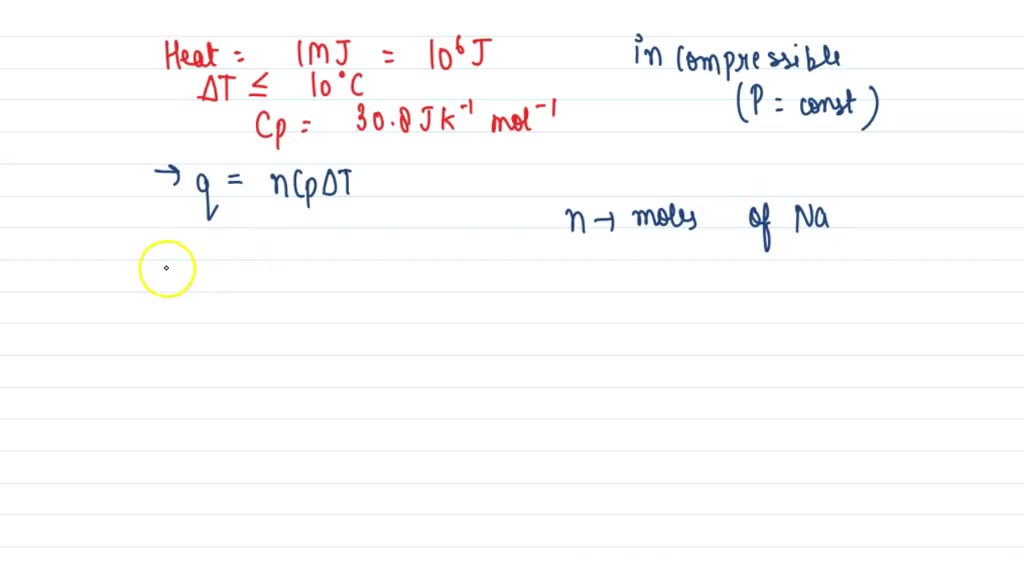 Heat = 1MJ = 10⁶J
ΔT ≤ 10°C
Cp = 30.8 JK⁻¹ mol⁻¹
incompressible
(P = const)
→ q = nCpΔT
n → moles of Na